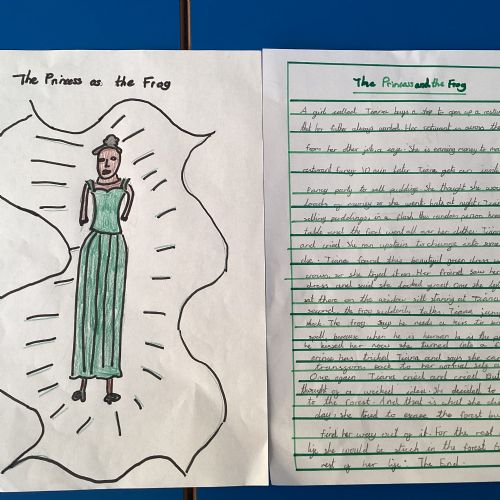 The Princess as the Frog
The Princess and the Frog
A girl called Tiana buys a shop to open up a
that her father always wanted. Her restaurant is across the
from her other job on edge. She is earning money to
restaurant fancy. 10 min later Tiana gets an
Fancy party to sell puddings. She thought she
loads of money so she went late at night. Tiana
selling puddings, in a flash the random person
table and the food went all over her clothes. Tiana
and cried. She ran upstairs to change into
else. Tiana found this beautiful green dress
crown, so she tryed it on. Her friend saw her
dress and said she looked great. One
sat there on the window sill staring at Tiana
second, the frog suddenly talks. Tiana
back. The frog says he needs a kiss to
spell, because when he is human he is the
he kissed her now she turned into a
has tricked Tiana and says she
transform back to her normal self
Once again Tiana cried and cried. But
thought of a wicked idea. She decided to
to the forest. And that is what she
day, she tried to escape the forest
find her way out of it. For the rest
life she would be stuck in the forest
rest of her life. The End.